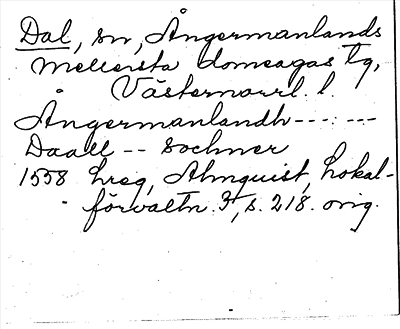 Dal, sn, Ångermanlands
mellersta domsagas tg,
Västernorrl. l.
Ångermanlandh --- : ---
Daall -- sochner
1558 hreg, Almquist, Lokal-
förvaltn. 3, s. 218. orig.